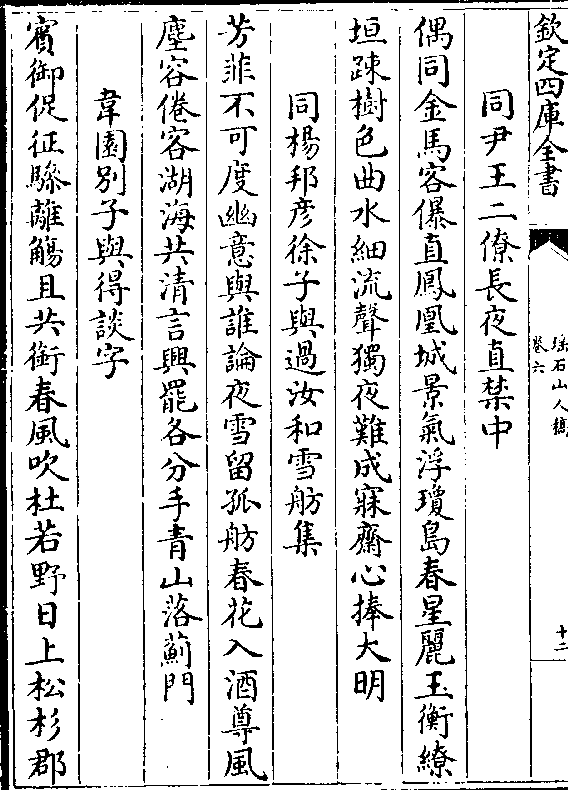 欽定四庫全書
瑶石山人稿
卷六
十二
同尹王二僚長夜直禁中
偶同金馬客儤直鳳凰城景氣浮瓊島春星麗玉衡繚
垣踈樹色曲水細流聲獨夜難成寐齋心捧大明
同楊邦彥徐子與過汝和雪舫集
芳菲不可度幽意與誰論夜雪留孤舫春花入酒尊風
塵容倦客湖海共清言興罷各分手青山落薊門
韋園別子與得談字
賓御促征驂離觴且共銜春風吹杜若野日上松杉郡